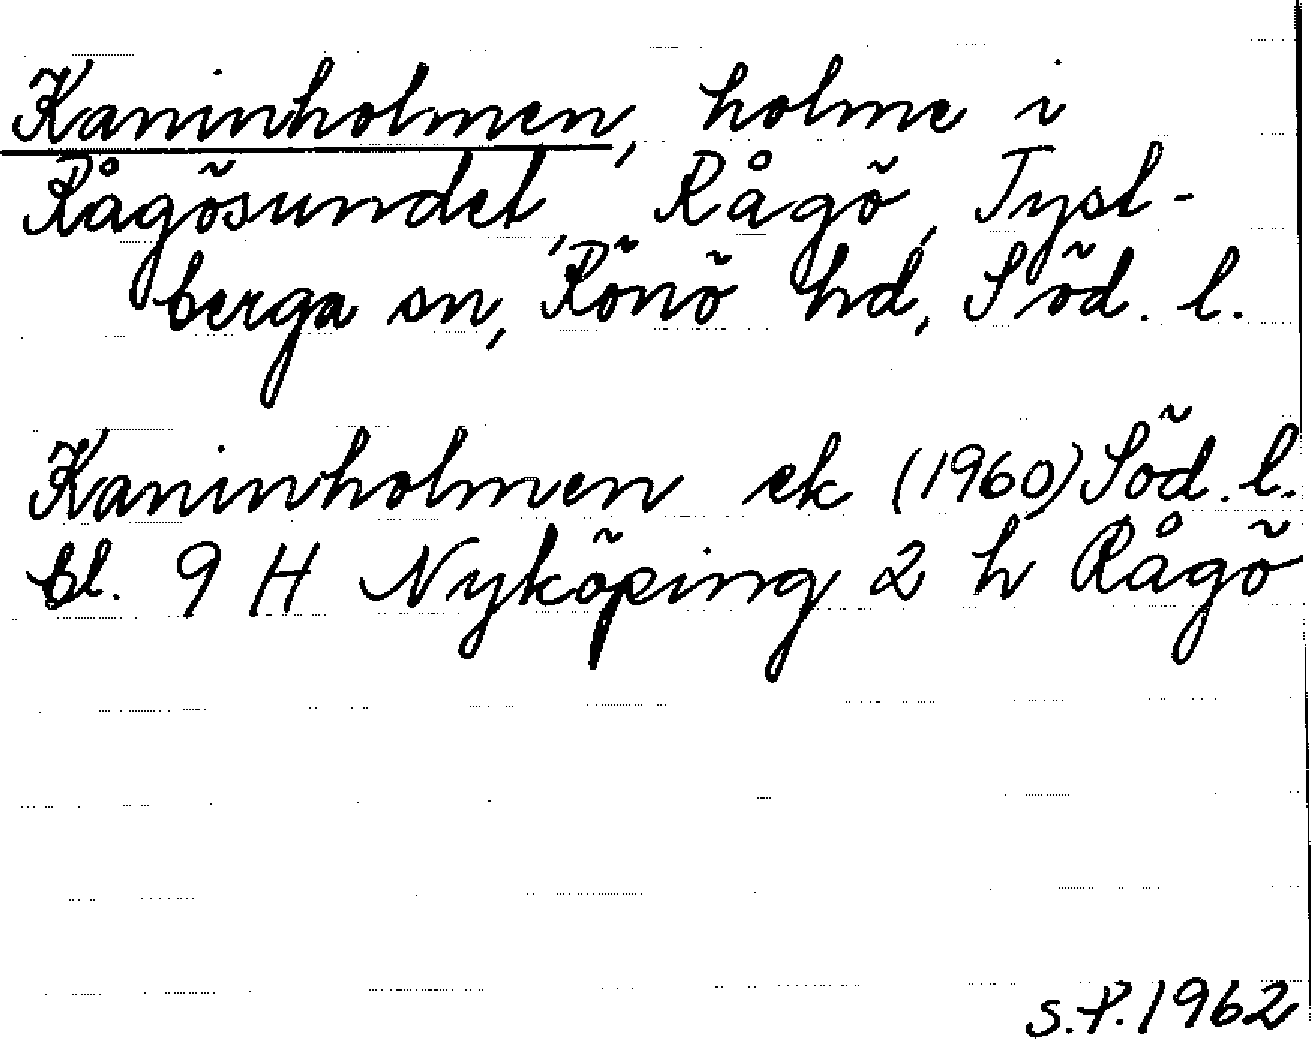 Kaninholmen, holme i
Rågösundet, Rågö, Tyst-
berga sn, Rönö hd, Söd. l.
Kaninholmen ek (1960) Söd. l.
bl. 9 H Nyköping 2 h Rågö
S.P. 1962